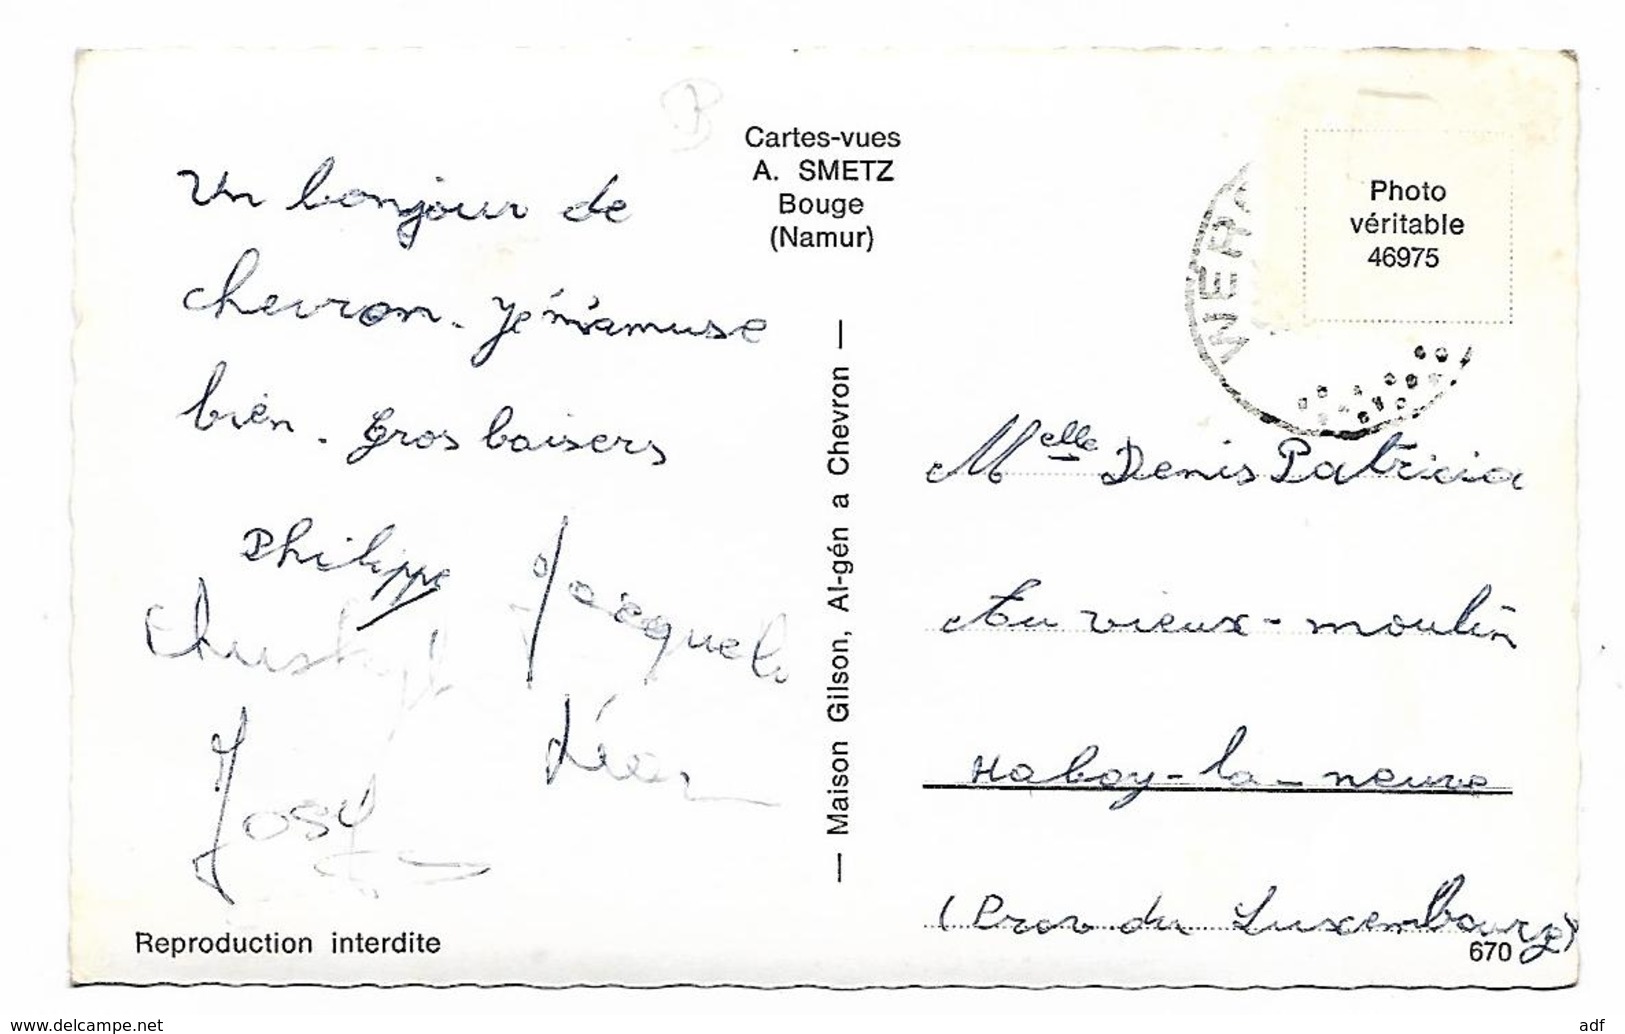 Un bonjour de
chevron. Je m'amuse
bien. Gros baisers
Philippe
Josy
Léon
Reproduction interdite
Cartes-vues
A. SMETZ
Bouge
(Namur)
— Maison Gilson, Al-gén a Chevron —
Photo
véritable
46975
Melle Denis Patricia
Au vieux-moulin
Habay-la-neuve
(Prov du Luxembourg)
670
www.delcampe.net
adf